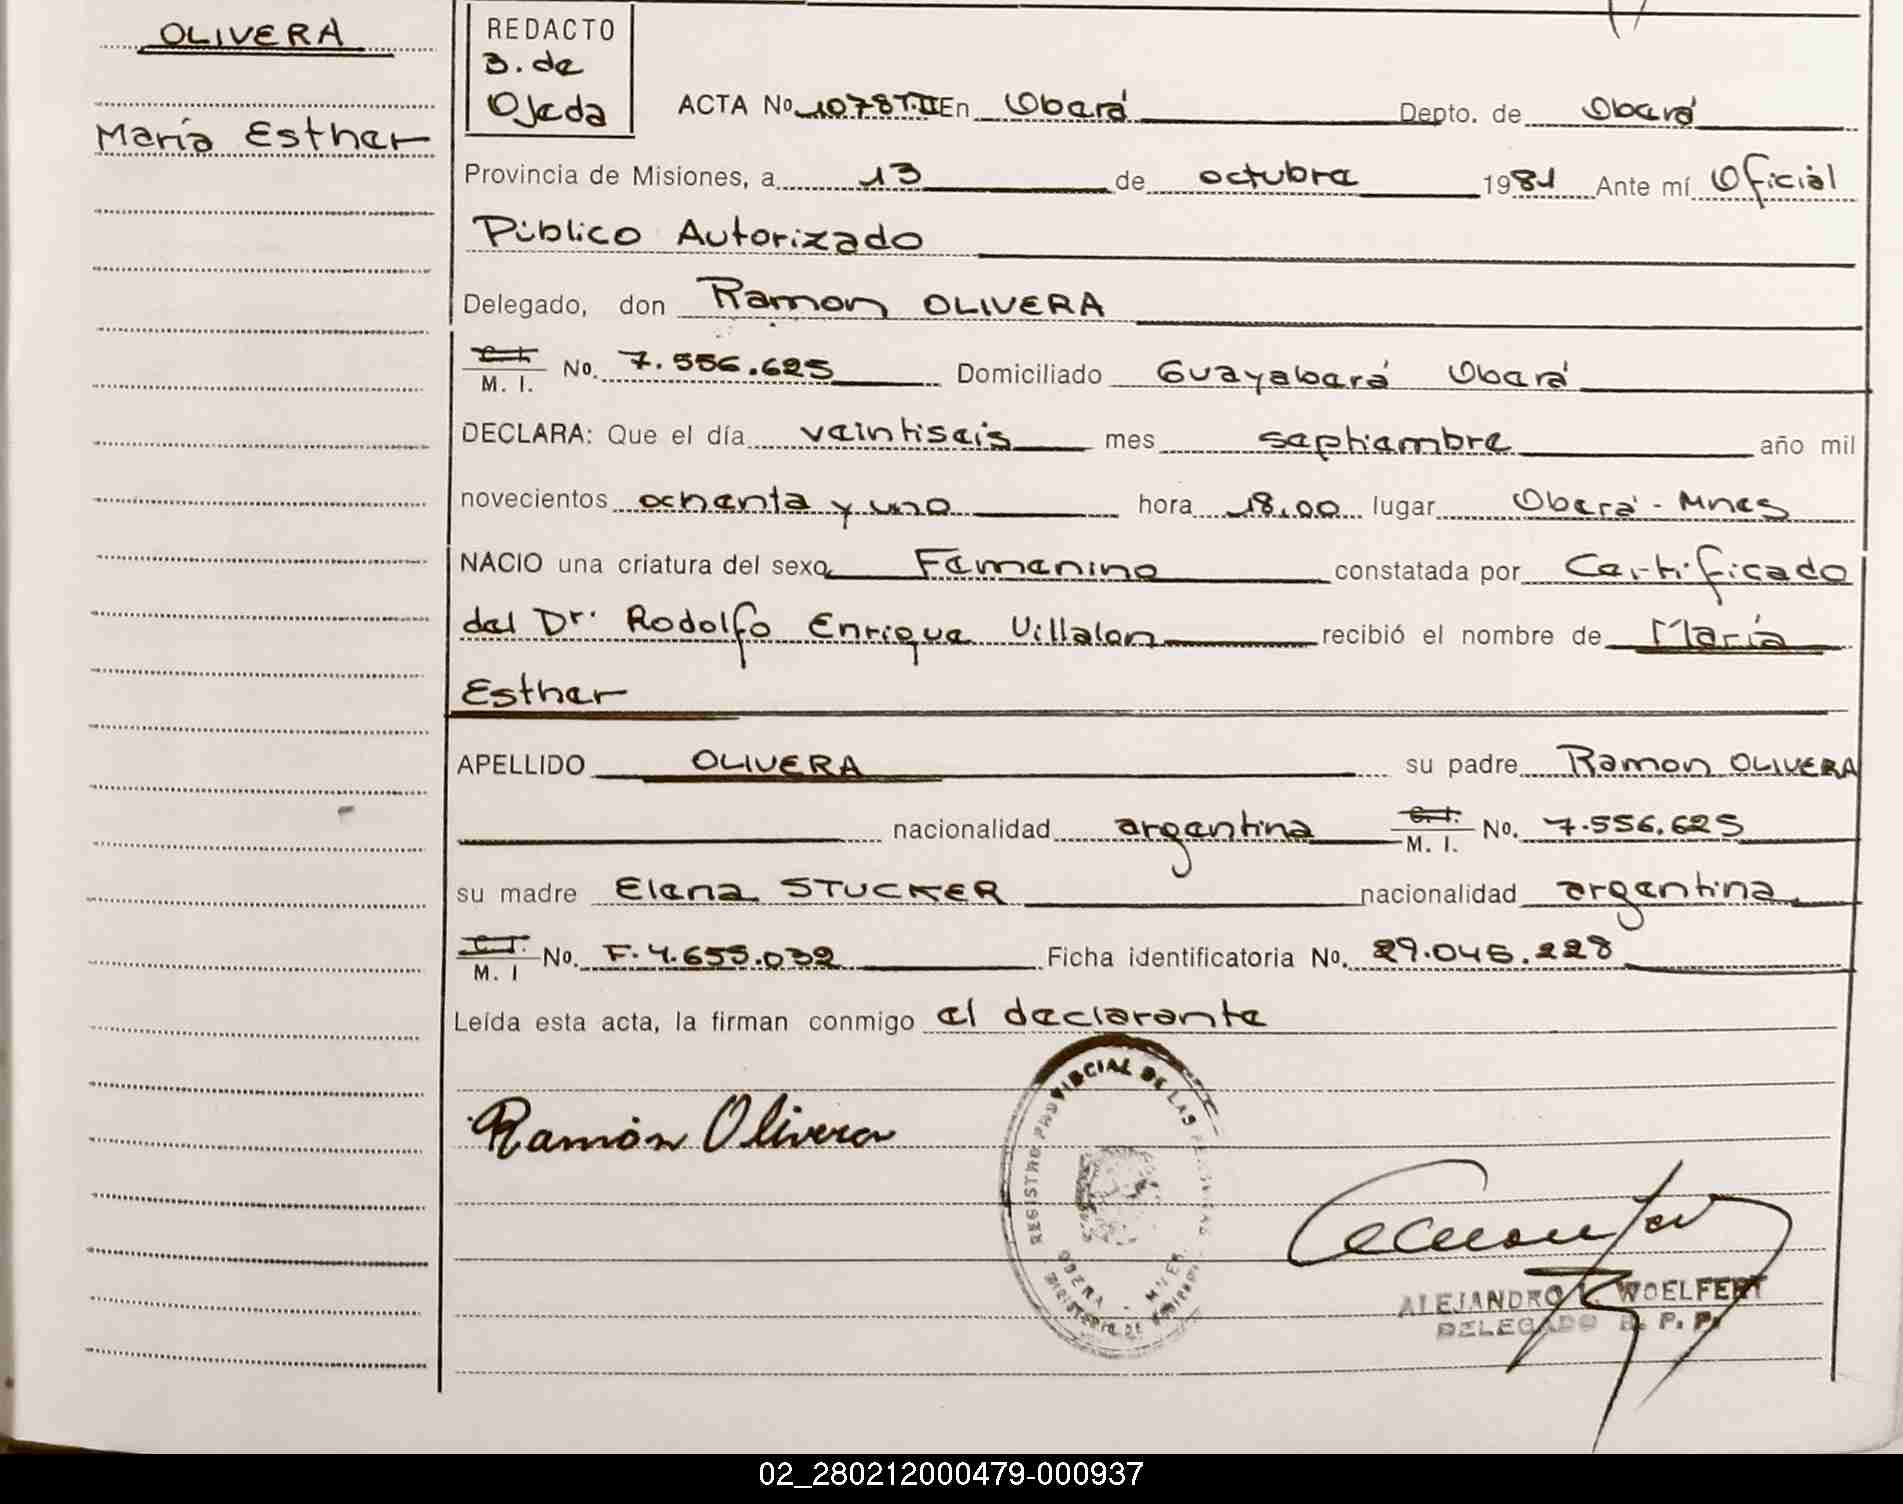 OLIVERA
María Esther
REDACTO
B. de
Ojeda
ACTA No. 1078 T.II En Oberá Depto. de Oberá
Provincia de Misiones, a 13 de octubre 1981 Ante mí Oficial
Público Autorizado
Delegado, don Ramon OLIVERA
C.I.
M. I. No. 7.556.625 Domiciliado Guayaberá Oberá
DECLARA: Que el día veintiseis mes septiembre año mil
novecientos ochenta y uno hora 18,00 lugar Oberá - Mnes
NACIO una criatura del sexo Femenino constatada por Certificado
del Dr. Rodolfo Enrique Villalon recibió el nombre de María
Esther
APELLIDO OLIVERA su padre Ramon OLIVERA
nacionalidad argentina C.I.
M. I. No. 7.556.625
su madre Elena STUCKER nacionalidad argentina
C.I.
M. I No. F. 4.655.032 Ficha identificatoria No. 29.045.228
Leída esta acta, la firman conmigo el declarante
Ramón Olivera
REGISTRO PROVINCIAL DE LAS PERSONAS
OBERA - MNES
MINISTERIO DE GOBIERNO
ALEJANDRO WOELFERT
DELEGADO R. P. P.
02_280212000479-000937